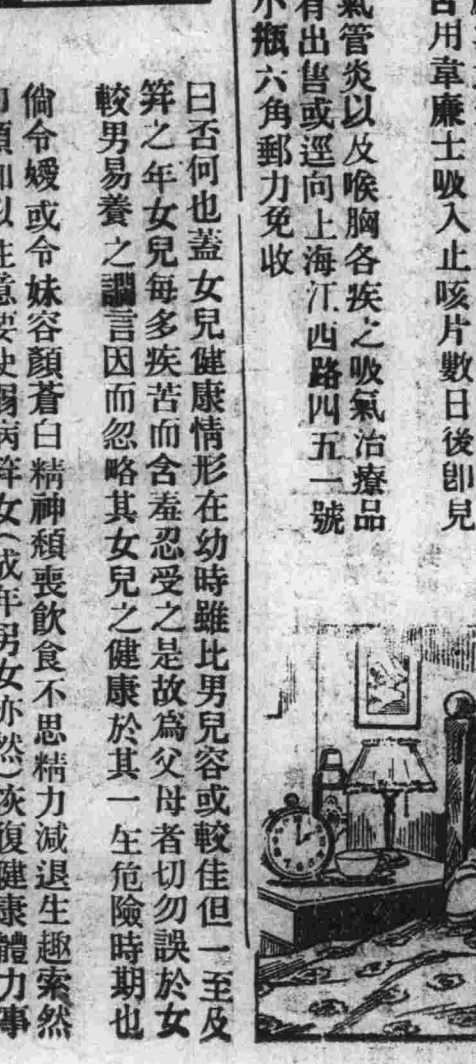 用韋廉士吸入止咳片數日後卽見
氣管炎以及喉胸各疾之吸氣治療品
有出售或逕向上海江西路四五一號
小瓶六角郵力免收
曰否何也蓋女兒健康情形在幼時雖比男兒容或較佳但一至及
笄之年女兒每多疾苦而含羞忍受之是故爲父母者切勿誤於女
較男易養之謂言因而忽略其女兒之健康於其一生危險時期也
倘令嬡或令妹容顏蒼白精神頹喪飲食不思精力減退生趣索然
須加以注意要使弱病笄女(成年男女亦然)恢復健康體力事